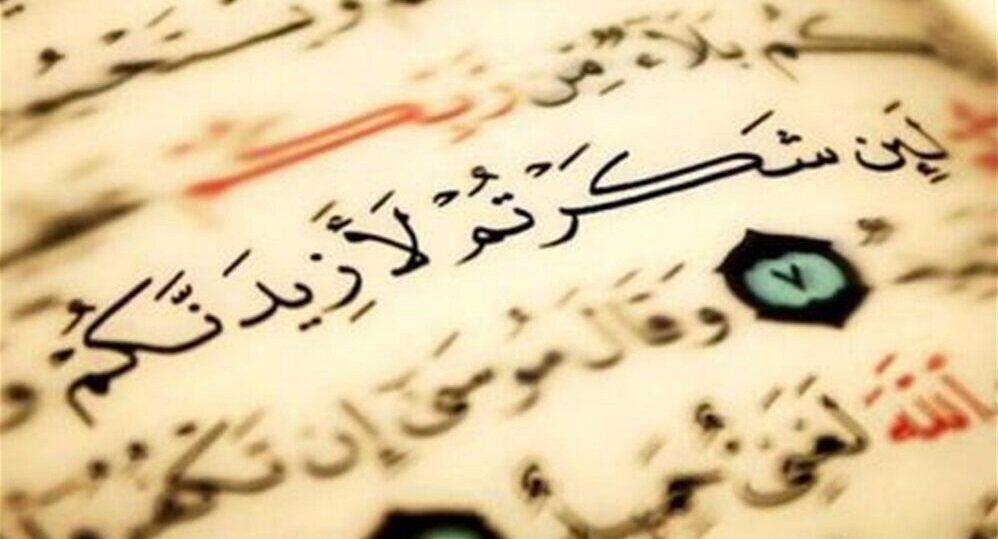 وَيَسْتَحْيُونَ
كُم بَلَاءٌ مِّن رَّبِّكُمْ
لَئِن شَكَرْتُمْ لَأَزِيدَنَّكُمْ و
٧ وَقَالَ مُوسَىٰ إِن تَكْفُرُوا
اللَّهَ لَغَنِيٌّ حَمِيدٌ